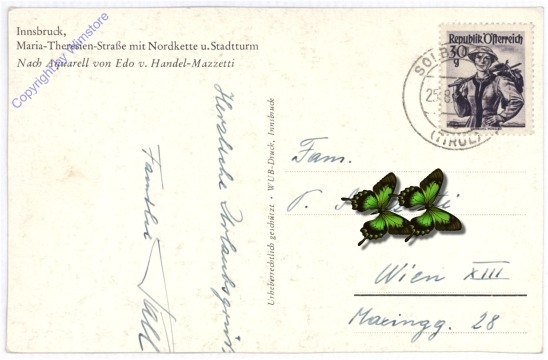 Innsbruck,
Maria-Theresien-Straße mit Nordkette u. Stadtturm
Nach Aquarell von Edo v. Handel-Mazzetti
Copyright by Wimstore
Herzliche Urlaubsgrüße
Familie
Urheberrechtlich geschützt • WUB-Druck, Innsbruck
Republik Österreich
30
g
SOLB
25.8.
(TIROL)
Fam.
Wien XIII
Maringg. 28